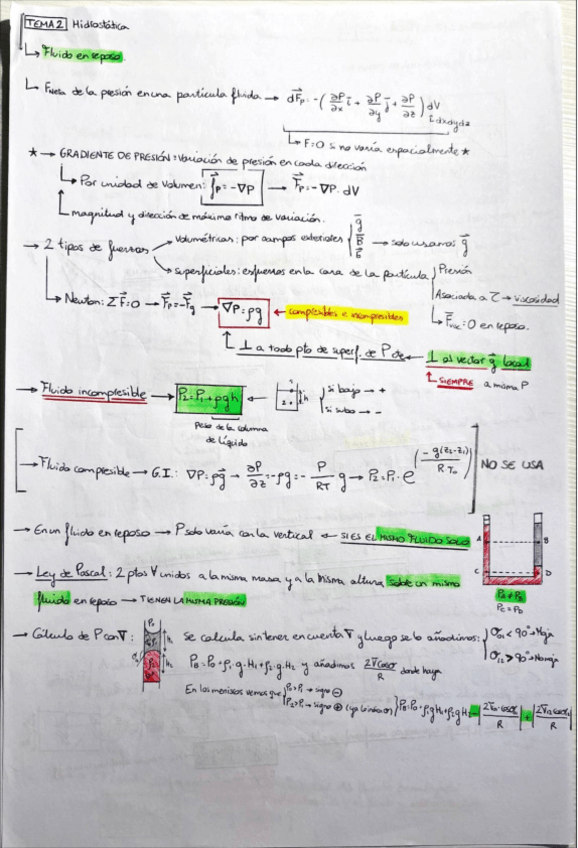 TEMA 2 Hidrostática
↳ Fluido en reposo.
↳ F neta de la presión en una partícula fluida → dF⃗p = -(∂P/∂x i⃗ + ∂P/∂y j⃗ + ∂P/∂z) dV
↳ dxdydz
↳ F=0 si no varía espacialmente *
* → GRADIENTE DE PRESIÓN: Variación de presión en cada dirección
↳ Por unidad de Volumen: f⃗p = -∇P → F⃗p = -∇P · dV
↳ magnitud y dirección de máximo ritmo de variación.
→ 2 tipos de fuerzas
volumétricas: por campos exteriores { g⃗ B⃗ E⃗ → solo usaremos g⃗
superficiales: esfuerzos en la cara de la partícula { Presión
Asociada a τ → viscosidad
↳ F⃗visc = 0 en reposo.
↳ Newton: ΣF⃗=0 → F⃗p = -F⃗g → ∇P = ρg ← compresibles e incompresibles
↳ ⊥ a todo pto de superf. de P cte ← ⊥ al vector g⃗ local
↳ SIEMPRE a misma P
→ Fluido incompresible → P2 = P1 + ρgh ← 1 2 h { si bajo → +
si subo → -
Peso de la columna
de líquido
→ Fluido compresible → G.I.: ∇P = ρg⃗ → ∂P/∂z = -ρg = - P/RT g → P2 = P1 · e^(-g(z2-z1)/R·T0) NO SE USA
→ En un fluido en reposo → P solo varía con la vertical ← SI ES EL MISMO FLUIDO SOLO
→ Ley de Pascal: 2 ptos ∀ unidos a la misma masa y a la misma altura sobre un mismo
fluido en reposo → TIENEN LA MISMA PRESIÓN
A B
C D
PA ≠ PB
PC = PD
→ Cálculo de P con ∇: Se calcula sin tener en cuenta ∇ y luego se lo añadimos: { σ01 < 90° → Moja
σ12 > 90° → No moja
PB = P0 + ρ1·g·H1 + ρ2·g·H2 y añadimos 2∇cosσ/R donde haya
En los meniscos vemos que { P0 > P1 → signo ⊖
P2 > P1 → signo ⊕ } PB = P0 + ρ1gH1 + ρ2gH2 - |2∇01·cosσ/R| + |2∇12cosσ/R|